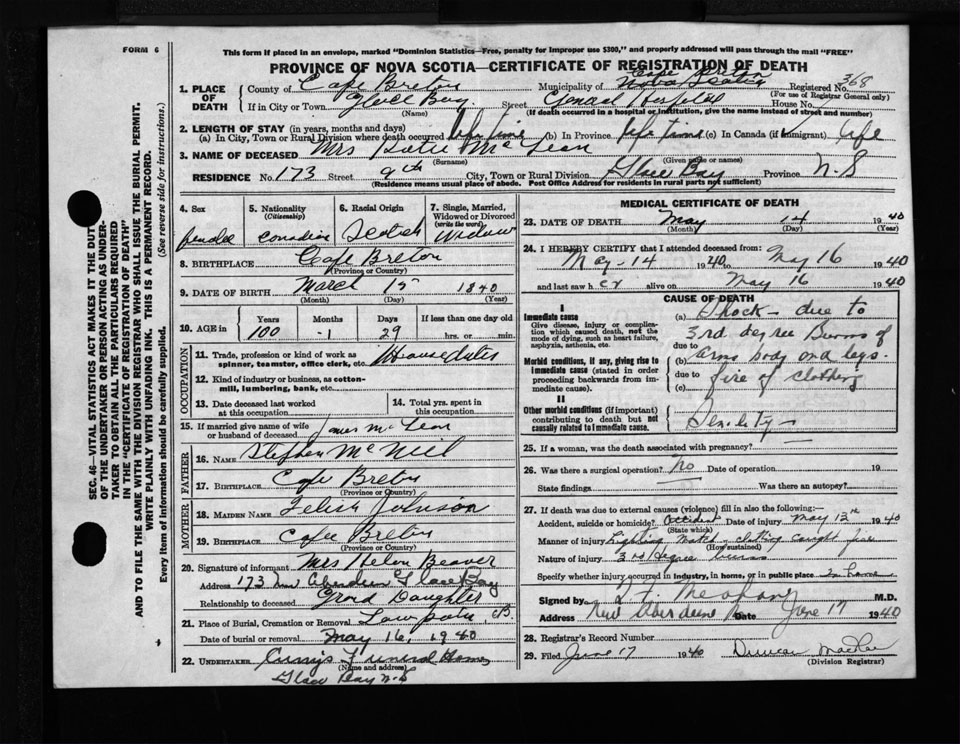 FORM 6
This form if placed in an envelope, marked "Dominion Statistics—Free, penalty for improper use $300," and properly addressed will pass through the mail "FREE"
PROVINCE OF NOVA SCOTIA—CERTIFICATE OF REGISTRATION OF DEATH
1. PLACE OF DEATH
County of Cape Breton Municipality of Cape Breton Nova Scotia Registered No. 368
(For use of Registrar General only)
If in City or Town Glace Bay Street General Hospital House No.
(Name) (If death occurred in a hospital or institution, give the name instead of street and number)
2. LENGTH OF STAY (in years, months and days)
(a) In City, Town or Rural Division where death occurred life time (b) In Province life time (c) In Canada (if immigrant) life
3. NAME OF DECEASED Mrs Katie McLean
(Surname) (Given name or names)
RESIDENCE No. 173 Street 9th City, Town or Rural Division Glace Bay Province N.S
(Residence means usual place of abode. Post Office Address for residents in rural parts not sufficient)
4. Sex female
5. Nationality (Citizenship)
6. Racial Origin Scotch
7. Single, Married, Widowed or Divorced (write the word) Widow
8. BIRTHPLACE Cape Breton
(Province or Country)
9. DATE OF BIRTH March 15 1840
(Month) (Day) (Year)
10. AGE in Years Months Days If less than one day old
100 -1 29 hrs. or min.
OCCUPATION
11. Trade, profession or kind of work as spinner, teamster, office clerk, etc.
12. Kind of industry or business, as cotton-mill, lumbering, bank, etc.
13. Date deceased last worked at this occupation
14. Total yrs. spent in this occupation
15. If married give name of wife or husband of deceased James McLean
FATHER
16. NAME Stephen McNeil
17. BIRTHPLACE Cape Breton
(Province or Country)
MOTHER
18. MAIDEN NAME Johnson
19. BIRTHPLACE Cape Breton
(Province or Country)
20. Signature of informant Mrs Helen Beaver
Address 173 Glace Bay
Relationship to deceased Grand Daughter
21. Place of Burial, Cremation or Removal C.B.
Date of burial or removal May 16, 1940
22. UNDERTAKER Funeral Home
(Name and address)
Glace Bay N.S
MEDICAL CERTIFICATE OF DEATH
23. DATE OF DEATH May 14 1940
(Month) (Day) (Year)
24. I HEREBY CERTIFY that I attended deceased from:
May-14 1940 to May 16 1940
and last saw h er alive on May 16 1940
CAUSE OF DEATH
I
Immediate cause
Give disease, injury or complication which caused death, not the mode of dying, such as heart failure, asphyxia, asthenia, etc.
(a) Shock - due to
3rd degree Burns of
due to
(b) arms body and legs.
Morbid conditions, if any, giving rise to immediate cause (stated in order proceeding backwards from immediate cause).
due to fire of clothing
(c)
II
Other morbid conditions (if important) contributing to death but not causally related to immediate cause. Senility
25. If a woman, was the death associated with pregnancy?
26. Was there a surgical operation? No Date of operation 19
State findings Was there an autopsy?
27. If death was due to external causes (violence) fill in also the following:—
Accident, suicide or homicide? Accident Date of injury May 13th 1940
(State which)
Manner of injury Lighting match - clothing caught fire
(How sustained)
Nature of injury 3rd degree burns
Specify whether injury occurred in industry, in home, or in public place in home
Signed by M.D.
Address New Aberdeen Date June 17 1940
28. Registrar's Record Number
29. Filed June 17 1940 Duncan MacRae
(Division Registrar)
SEC. 46—VITAL STATISTICS ACT MAKES IT THE DUTY
OF THE UNDERTAKER OR PERSON ACTING AS UNDERTAKER TO OBTAIN ALL THE PARTICULARS REQUIRED
IN THE "CERTIFICATE OF REGISTRATION OF DEATH"
AND TO FILE THE SAME WITH THE DIVISION REGISTRAR WHO SHALL ISSUE THE BURIAL PERMIT.
WRITE PLAINLY WITH UNFADING INK. THIS IS A PERMANENT RECORD.
Every item of information should be carefully supplied. (See reverse side for instructions.)